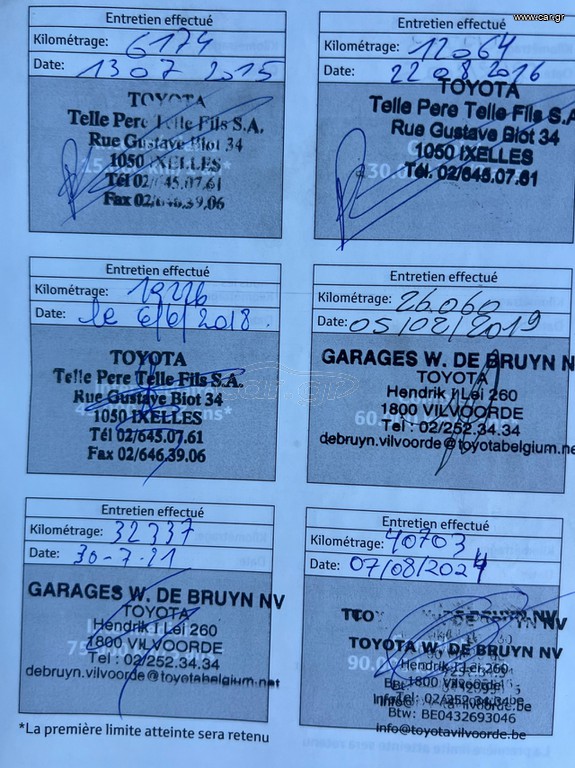 www.car.gr
Entretien effectué
Kilométrage: 6174
Date: 13 07 2015
TOYOTA
Telle Pere Telle Fils S.A.
Rue Gustave Biot 34
1050 IXELLES
Tél 02/645.07.61
Fax 02/646.39.06
Entretien effectué
Kilométrage: 12064
Date: 22 08 2016
TOYOTA
Telle Pere Telle Fils S.A
Rue Gustave Biot 34
1050 IXELLES
Tél. 02/645.07.61
Entretien effectué
Kilométrage:
Date: le 6/6/2018.
TOYOTA
Telle Pere Telle Fils S.A.
Rue Gustave Biot 34
1050 IXELLES
Tél 02/645.07.61
Fax 02/646.39.06
Entretien effectué
Kilométrage: 26.060
Date: 05/02/2019
GARAGES W. DE BRUYN N
TOYOTA
Hendrik I Lei 260
1800 VILVOORDE
Tel : 02/252.34.34
debruyn.vilvoorde@toyotabelgium.ne
Entretien effectué
Kilométrage: 32337
Date: 30-7-21
GARAGES W. DE BRUYN NV
TOYOTA
Hendrik I Lei 260
1800 VILVOORDE
Tel : 02/252.34.34
debruyn.vilvoorde@toyotabelgium.net
Entretien effectué
Kilométrage: 40703
Date: 07/08/2024
TOYOTA W. DE BRUYN NV
Hendrik I Lei 260
1800
Tel: 02/252.34.34
Btw: BE0432693046
info@toyotavilvoorde.be
*La première limite atteinte sera retenu